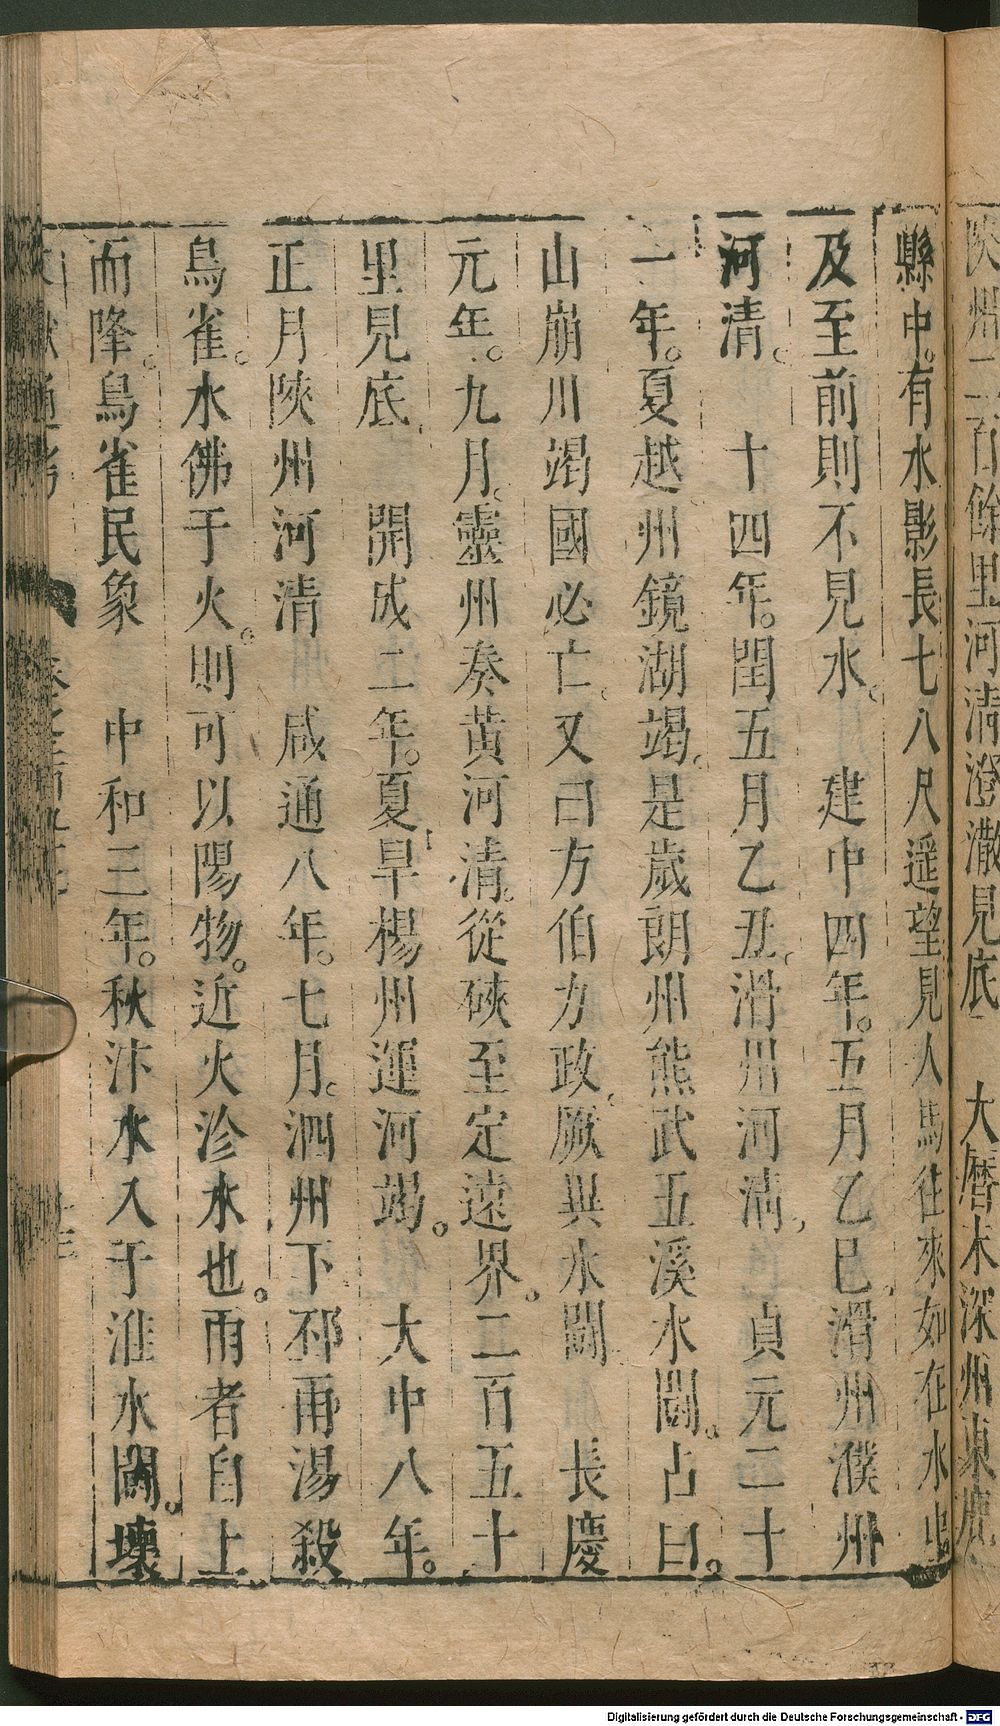 陝州二百餘里河清澄澈見底　大曆末深州東鹿
縣中。有水影長七八尺遥望見人馬往來如在水中
及至前則不見水。　建中四年。五月乙巳，滑州濮州
河清。　十四年。閏五月乙丑。滑州河清，　貞元二十
一年。夏越州鏡湖竭。是歲朗州熊武五溪水鬬。占曰。
山崩川竭國必亡。又曰方伯力政。厥異水鬬　長慶
元年。九月。靈州奏黃河清。從硤至定遠界。二百五十
里見底　開成二年。夏旱楊州運河竭。　大中八年。
正月陝州河清　咸通八年。七月。泗州下邳雨湯殺
鳥雀。水佛于火。則可以陽物。近火沴水也。雨者自上
而降。鳥雀民象　中和三年。秋汴水入于淮水鬬。壞
文獻通考
Digitalisierung gefördert durch die Deutsche Forschungsgemeinschaft - DFG